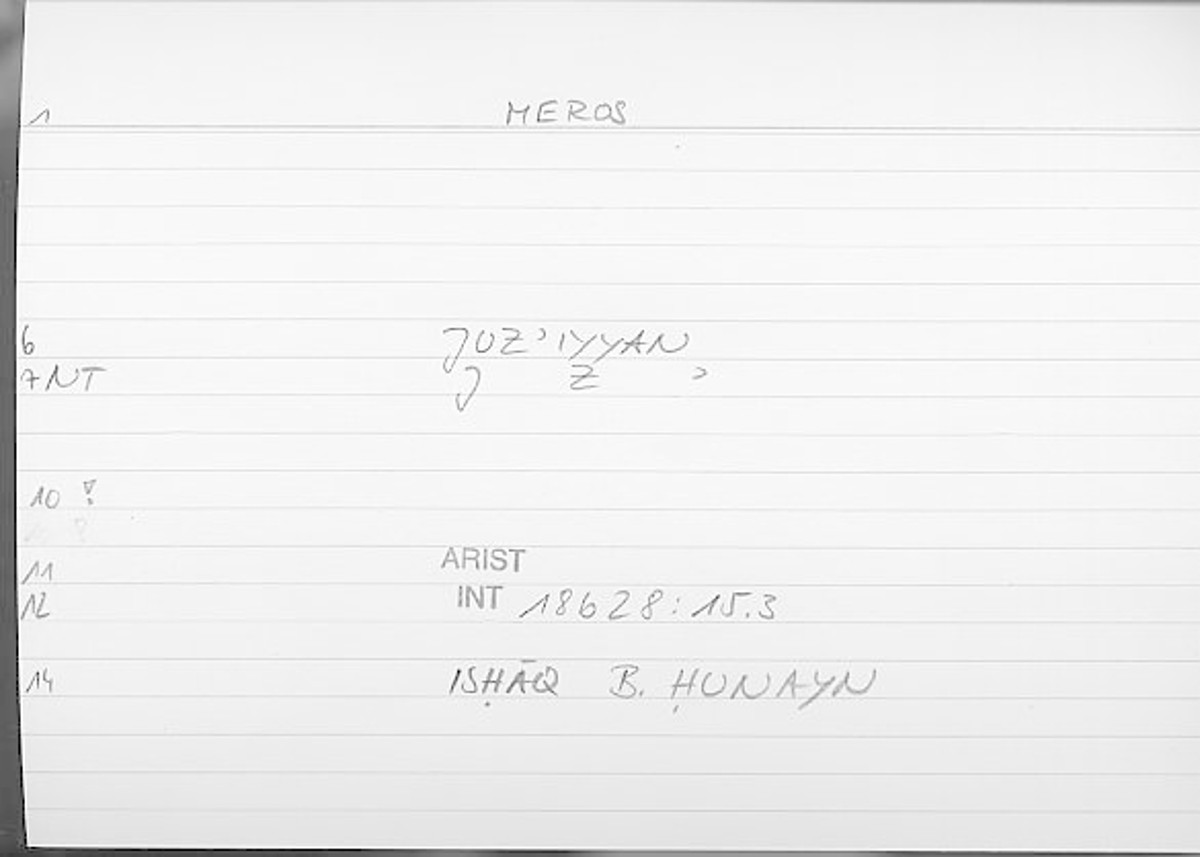 1 MEROS
6 JUZʾIYYAN
7NT J Z ʾ
10 !
11 ARIST
12 INT 18628:15.3
14 ISḤĀQ B. ḤUNAYN